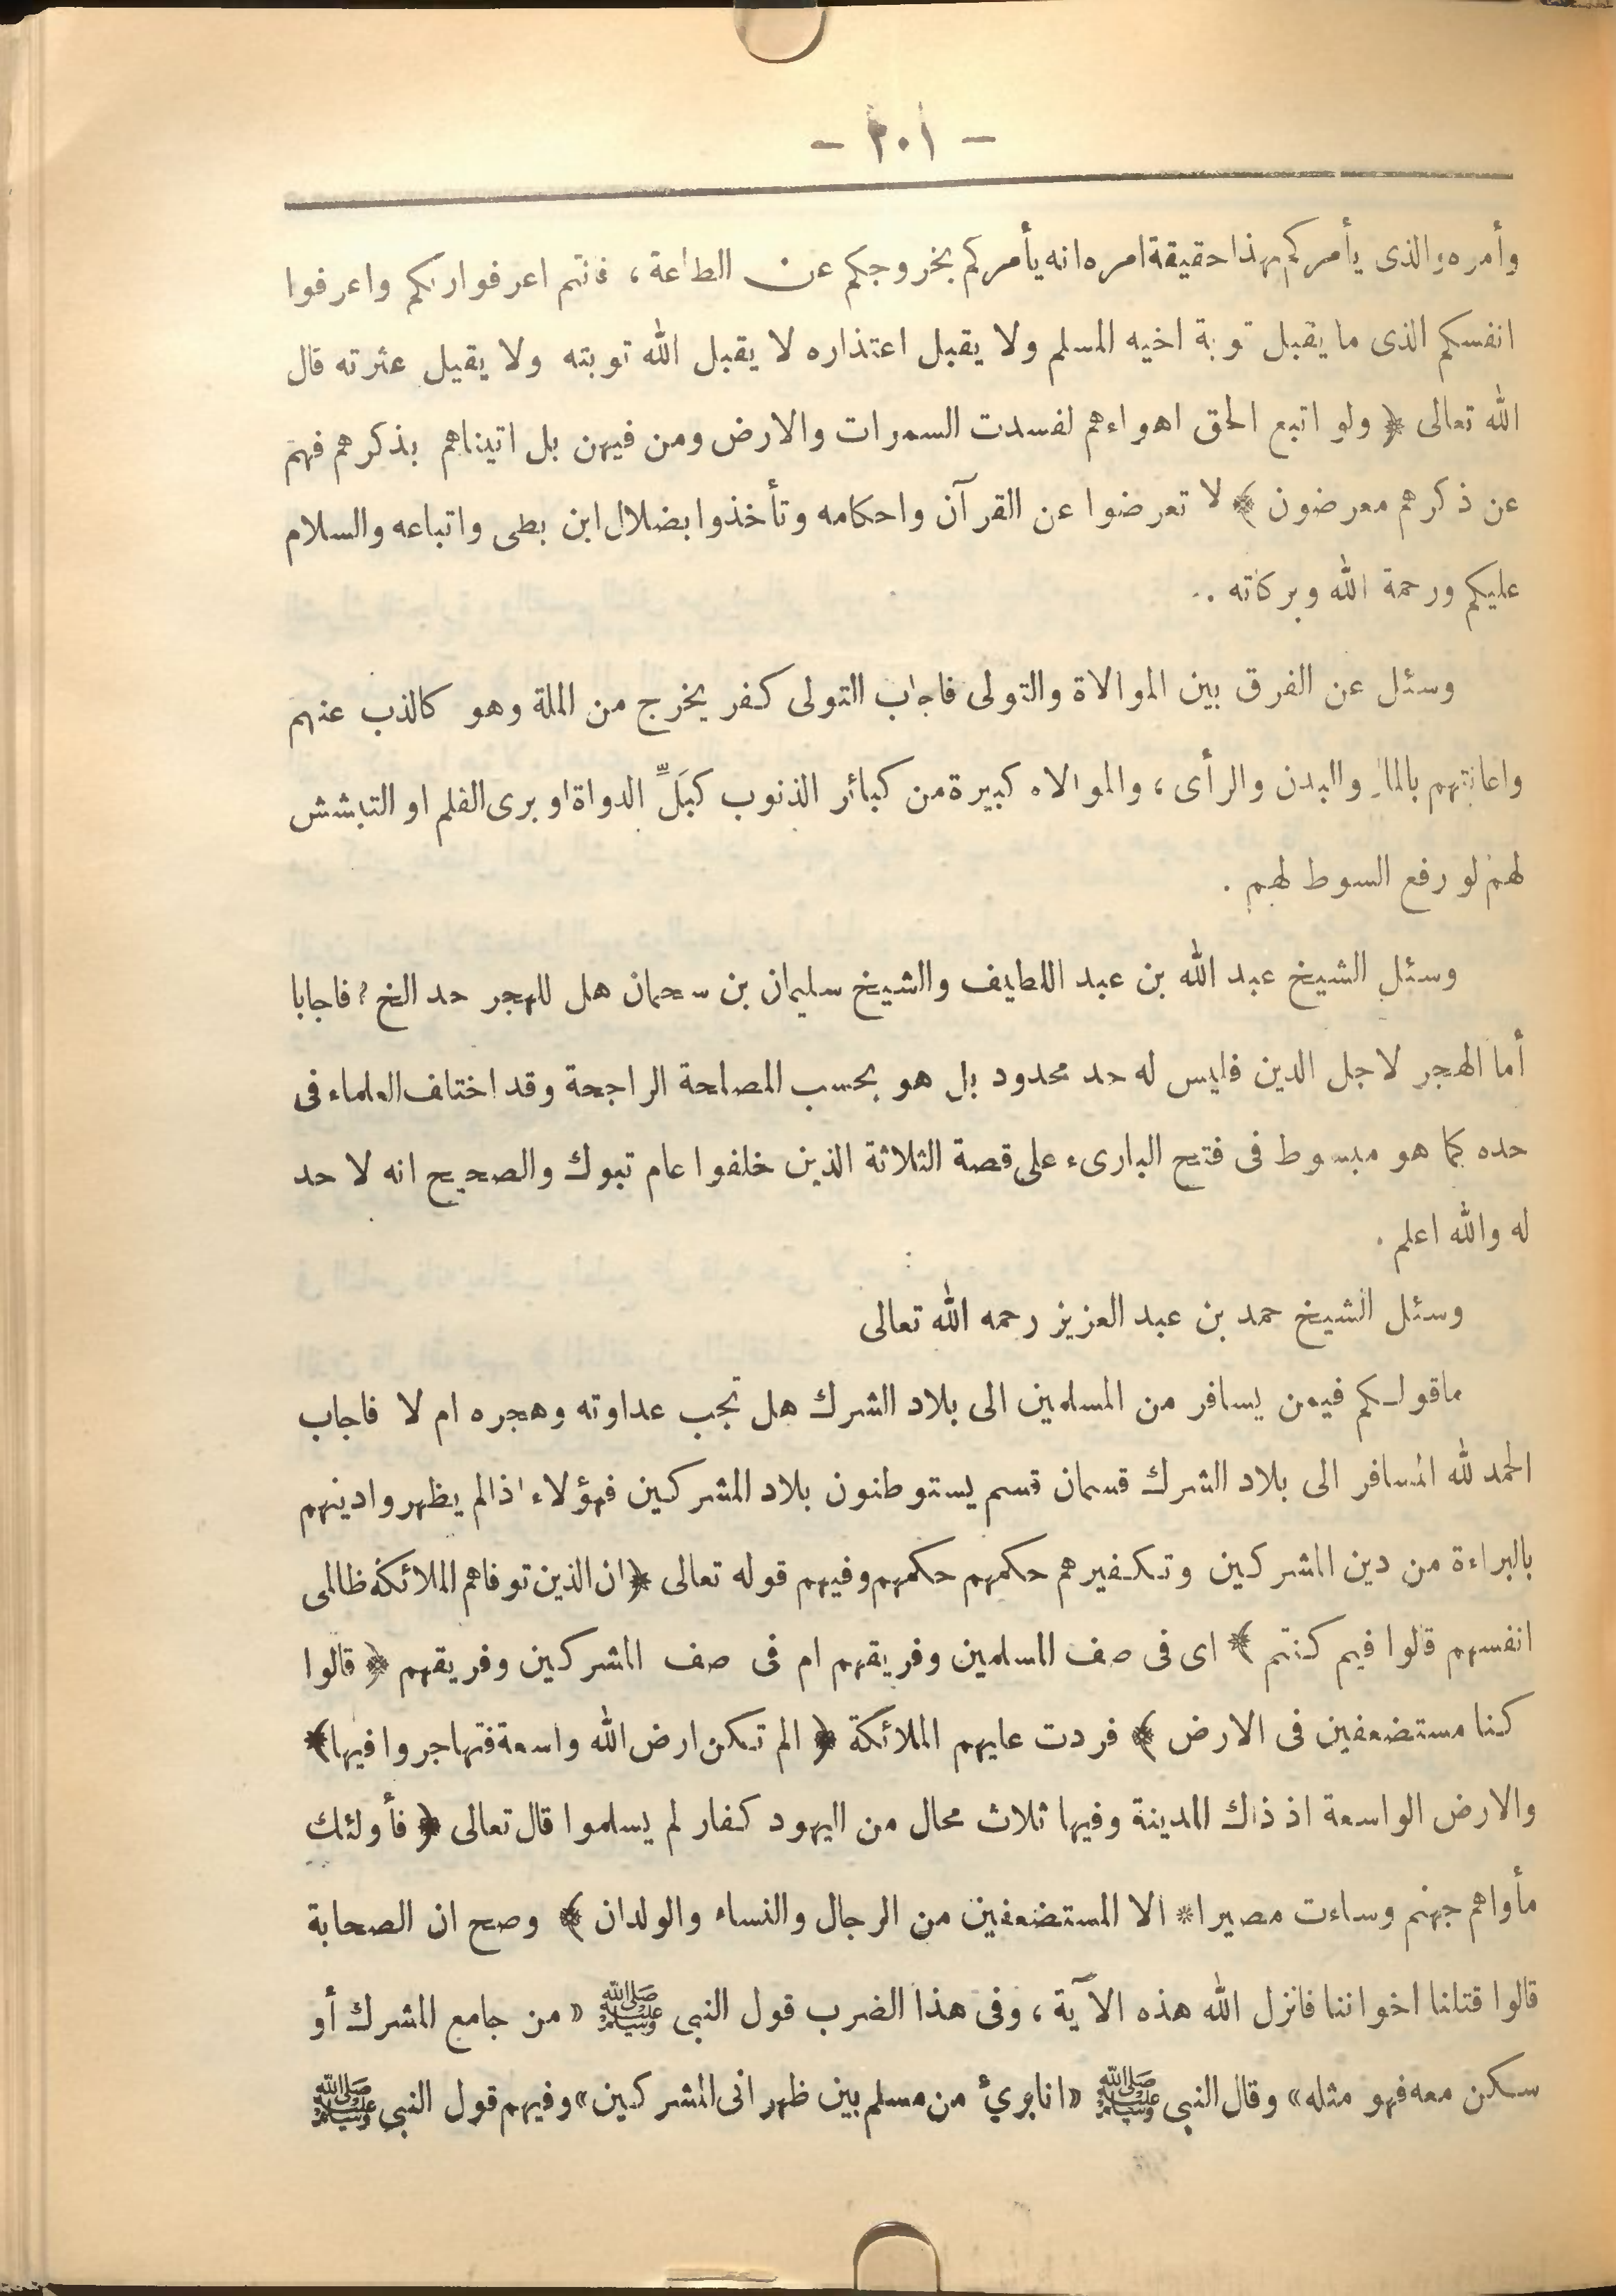 - ٢٠١ -
وأمره والذى يأمركم بهذا حقيقة امره انه يأمركم بخروجكم عن الطاعة ، فانتم اعرفوا ربكم واعرفوا
انفسكم الذى ما يقبل توبة اخيه المسلم ولا يقبل اعتذاره لا يقبل الله توبته ولا يقيل عثرته قال
الله تعالى ﴿ ولو اتبع الحق اهواءهم لفسدت السموات والارض ومن فيهن بل اتيناهم بذكرهم فهم
عن ذكرهم معرضون ﴾ لا تعرضوا عن القرآن واحكامه وتأخذوا بضلال ابن بطى واتباعه والسلام
عليكم ورحمة الله وبركاته ..
وسئل عن الفرق بين الموالاة والتولى فاجاب التولى كفر يخرج من الملة وهو كالذب عنهم
واعانتهم بالمال والبدن والرأى ، والموالاه كبيرة من كبائر الذنوب كبَلِّ الدواة او برى القلم او التبشش
لهم لو رفع السوط لهم .
وسئل الشيخ عبد الله بن عبد اللطيف والشيخ سليمان بن سحمان هل للهجر حد الخ ؟ فاجابا
أما الهجر لاجل الدين فليس له حد محدود بل هو بحسب المصلحة الراجحة وقد اختلف العلماء فى
حده كما هو مبسوط فى فتح البارىء على قصة الثلاثة الذين خلفوا عام تبوك والصحيح انه لا حد
له والله اعلم .
وسئل الشيخ حمد بن عبد العزيز رحمه الله تعالى
ماقولكم فيمن يسافر من المسلمين الى بلاد الشرك هل تجب عداوته وهجره ام لا فاجاب
الحمد لله المسافر الى بلاد الشرك قسمان قسم يستوطنون بلاد المشركين فهؤلاء اذالم يظهروا دينهم
بالبراءة من دين المشركين وتكفيرهم حكمهم حكمهم وفيهم قوله تعالى ﴿ ان الذين توفاهم الملائكة ظالمى
انفسهم قالوا فيم كنتم ﴾ اى فى صف المسلمين وفريقهم ام فى صف المشركين وفريقهم ﴿ قالوا
كنا مستضعفين فى الارض ﴾ فردت عليهم الملائكة ﴿ الم تكن ارض الله واسعة فتهاجروا فيها ﴾
والارض الواسعة اذ ذاك المدينة وفيها ثلاث محال من اليهود كفار لم يسلموا قال تعالى ﴿ فأولئك
مأواهم جهنم وساءت مصيرا * الا المستضعفين من الرجال والنساء والولدان ﴾ وصح ان الصحابة
قالوا قتلنا اخواننا فانزل الله هذه الآية ، وفى هذا الضرب قول النبى ﷺ « من جامع المشرك أو
سكن معه فهو مثله » وقال النبى ﷺ « انا برئ من مسلم بين ظهرانى المشركين » وفيهم قول النبى ﷺ